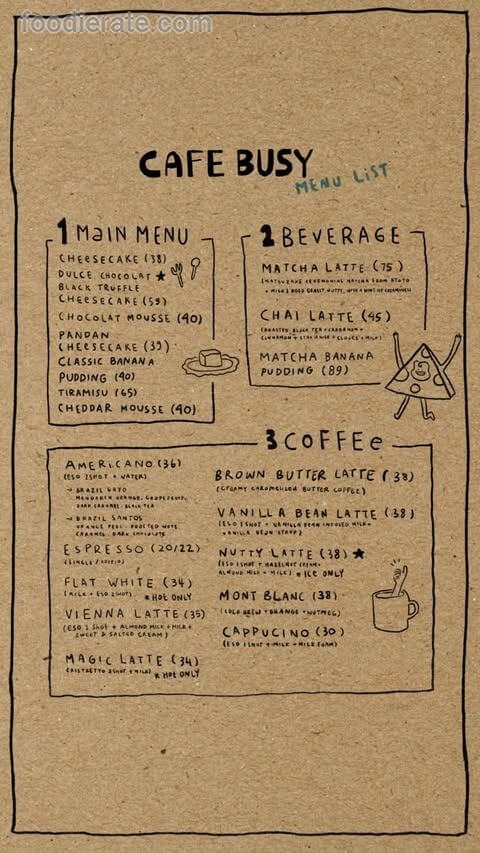 foodierate.com
CAFE BUSY
MENU LIST
1 MAIN MENU
CHEESECAKE (38)
DULCE CHOCOLAT ★
BLACK TRUFFLE
CHEESECAKE (59)
CHOCOLAT MOUSSE (40)
PANDAN
CHEESECAKE (39)
CLASSIC BANANA
PUDDING (40)
TIRAMISU (65)
CHEDDAR MOUSSE (40)
2 BEVERAGE
MATCHA LATTE (75)
CHAI LATTE (45)
(ROASTED BLACK TEA + CARDAMOM +
CINNAMON + STAR ANISE + CLOVES + MILK)
MATCHA BANANA
PUDDING (89)
3 COFFEE
AMERICANO (36)
(ESO 2SHOT + WATER)
→ BRAZIL GAYO
MANDARIN ORANGE, GRAPEFRUIT,
DARK CARAMEL, BLACK TEA
→ BRAZIL SANTOS
ORANGE PEEL, ROASTED NUTS,
CARAMEL, DARK CHOCOLATE
ESPRESSO (20/22)
(SINGLE / DOPPIO)
FLAT WHITE (34)
(MILK + ESO 2SHOT) * HOT ONLY
VIENNA LATTE (35)
(ESO 2 SHOT + ALMOND MILK + MILK +
SWEET & SALTED CREAM)
MAGIC LATTE (34)
(RISTRETTO 2SHOT + MILK) * HOT ONLY
BROWN BUTTER LATTE (38)
(CREAMY CARAMELIZED BUTTER COFFEE)
VANILLA BEAN LATTE (38)
(ESO 1 SHOT + VANILLA BEAN INFUSED MILK +
VANILLA BEAN SYRUP)
NUTTY LATTE (38) ★
(ESO 1 SHOT + HAZELNUT CREAM +
ALMOND MILK + MILK) * ICE ONLY
MONT BLANC (38)
(COLD BREW + ORANGE + NUTMEG)
CAPPUCINO (30)
(ESO 1 SHOT + MILK + MILK FOAM)